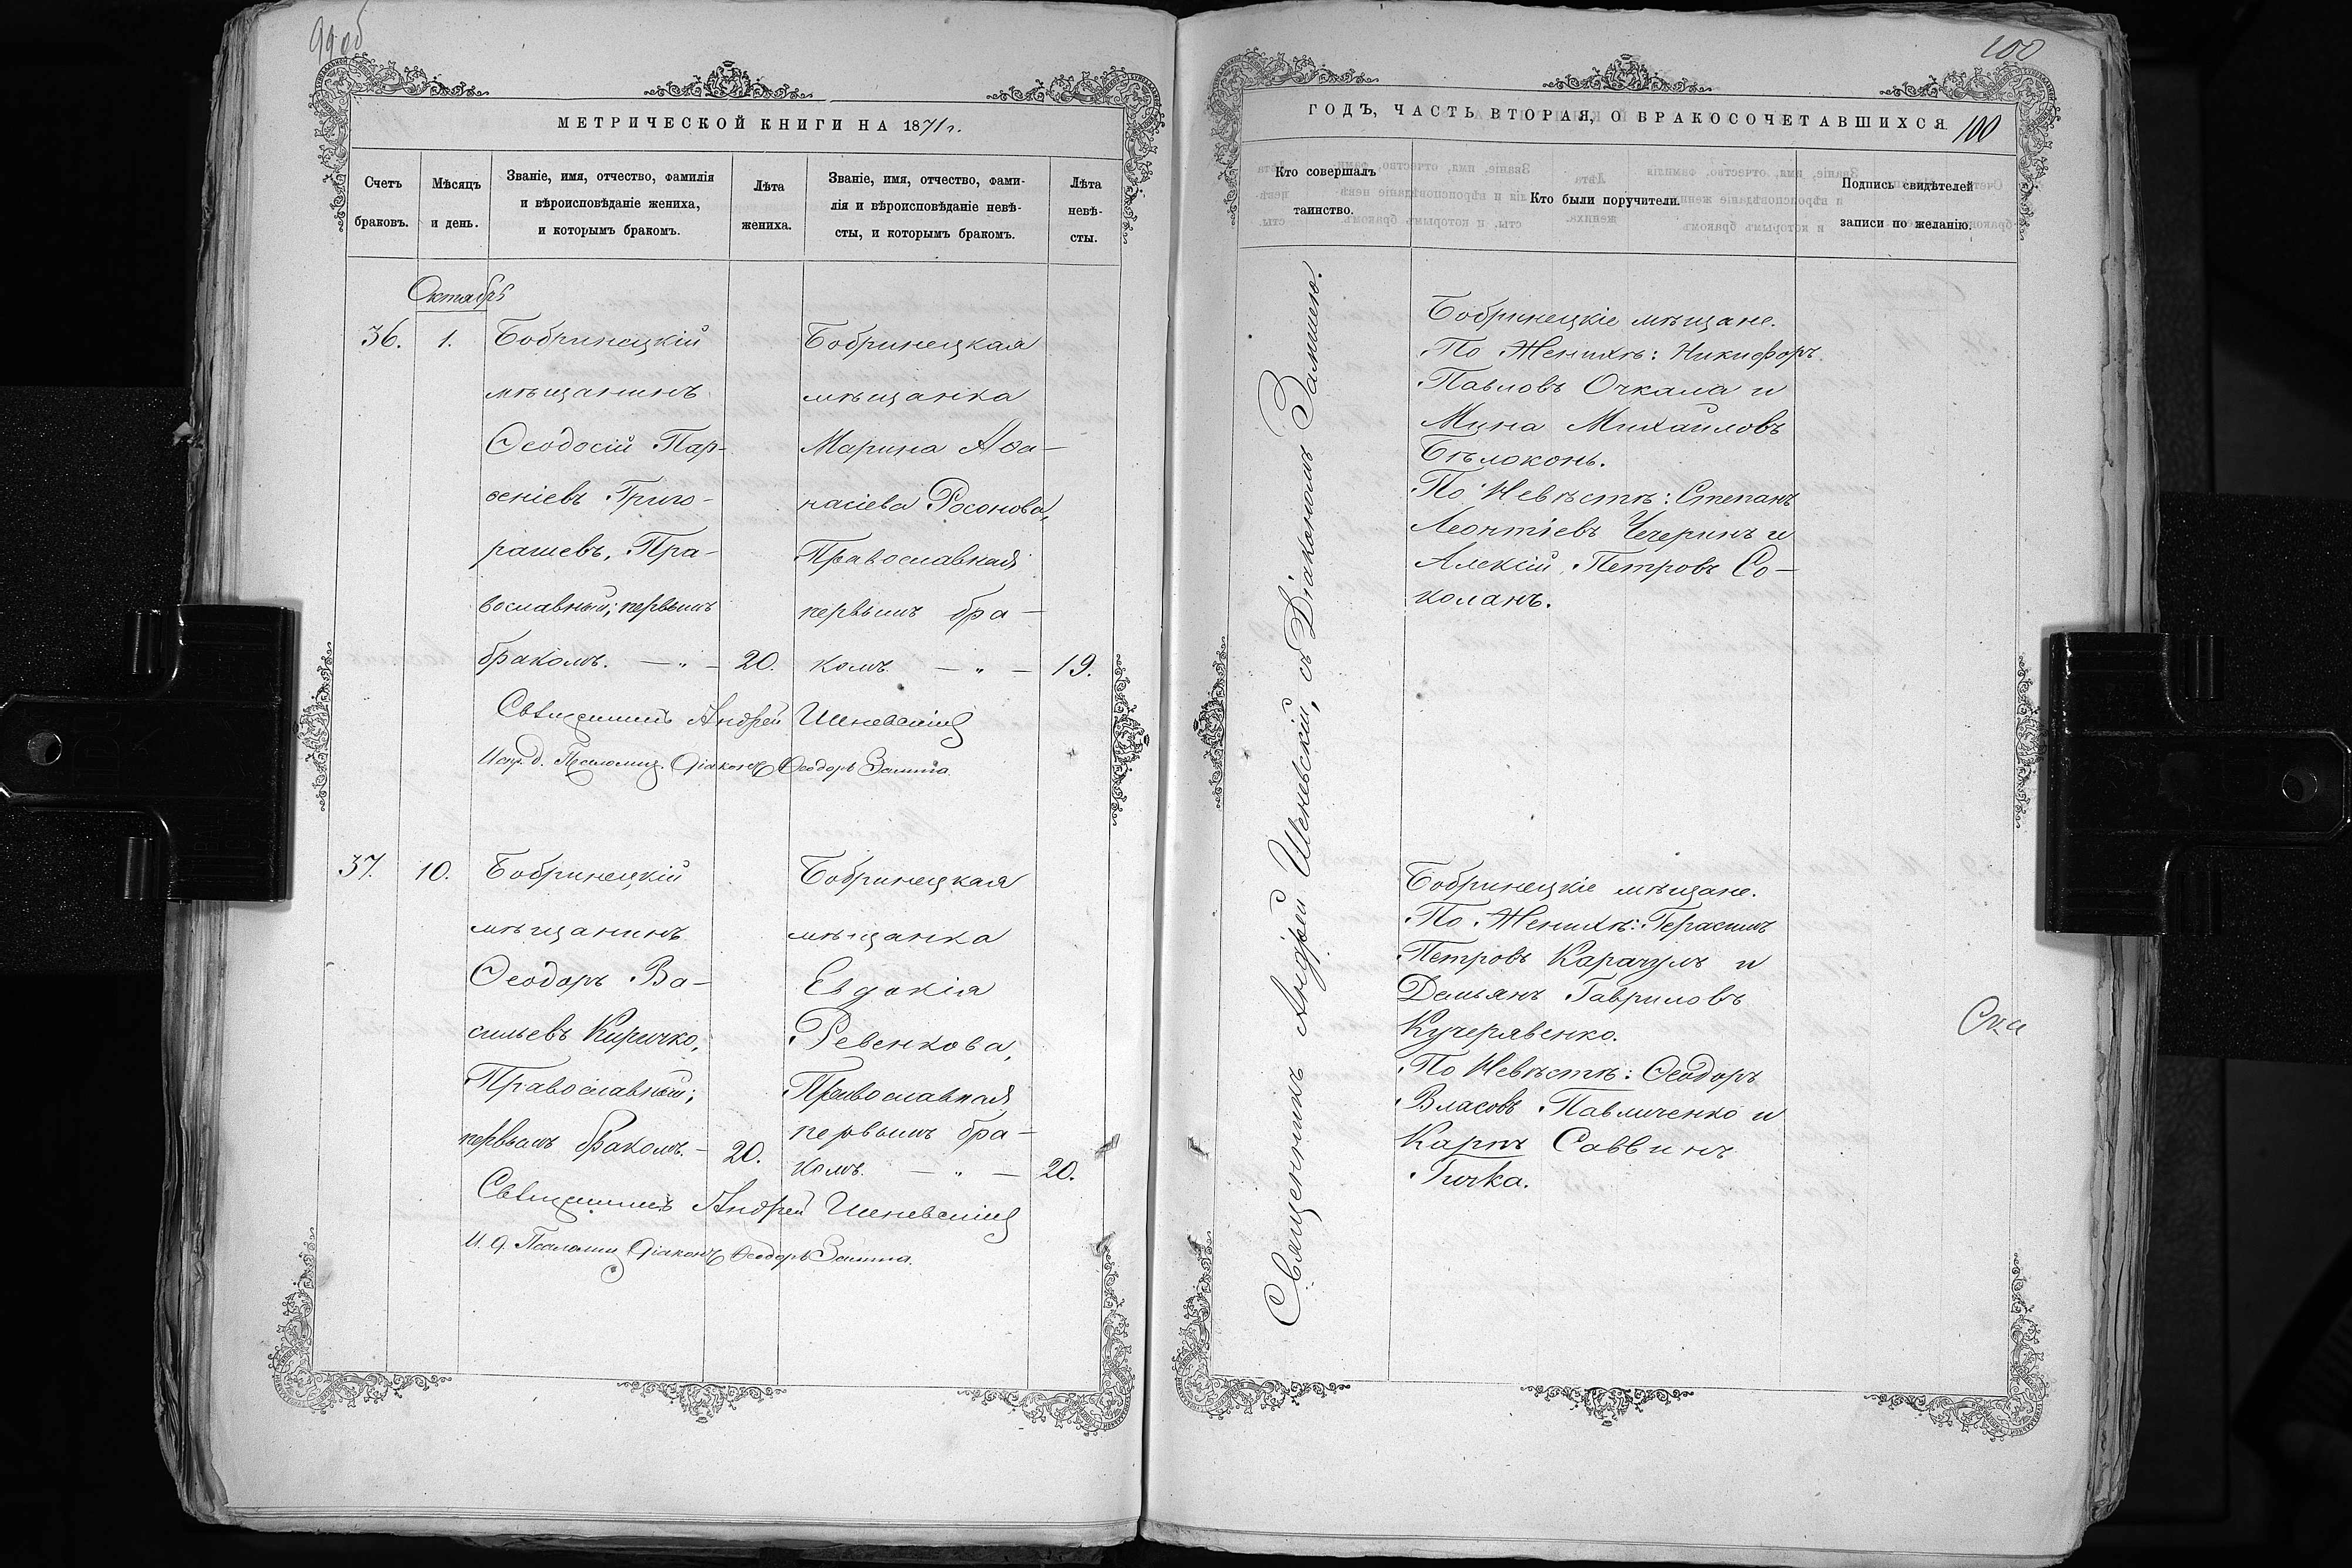 99 об
МЕТРИЧЕСКОЙ КНИГИ НА 1871 г.
Счетъ браковъ.
Мѣсяцъ и день.
Званіе, имя, отчество, фамилія
и вѣроисповѣданіе жениха,
и которымъ бракомъ.
Лѣта жениха.
Званіе, имя, отчество, фами-
лія и вѣроисповѣданіе невѣ-
сты, и которымъ бракомъ.
Лѣта невѣ-
сты.
Октябрь
36.
1.
Бобринецкій
мѣщанинъ
Ѳеодосій Пар-
ѳеніевъ Григо-
рашевъ, Пра-
вославный; первымъ
бракомъ. — „ —
20.
Бобринецкая
мѣщанка
Марина Аѳа-
насіева Росонова,
Православная
первымъ бра-
комъ. — „ —
19.
Священникъ Андрей Шеневскій
Испр. д. Псаломщ. Діаконъ Ѳеодоръ Замша.
37.
10.
Бобринецкій
мѣщанинъ
Ѳеодоръ Ва-
сильевъ Киричко,
Православный;
первымъ бракомъ. —
20.
Бобринецкая
мѣщанка
Евдокія
Ревенкова,
Православная
первымъ бра-
комъ. — „ —
20.
Священникъ Андрей Шеневскій
И. д. Псаломщ. Діаконъ Ѳеодоръ Замша.
100
ГОДЪ, ЧАСТЬ ВТОРАЯ, О БРАКОСОЧЕТАВШИХСЯ.
100
Кто совершалъ
таинство.
Кто были поручители.
Подпись свидѣтелей
записи по желанію.
Священникъ Андрей Шеневскій, съ Діакономъ Замшею.
Бобринецкіе мѣщане.
По Женихѣ: Никифоръ
Павловъ Очкала и
Мина Михайловъ
Бѣлоконь.
По Невѣстѣ: Степанъ
Леонтіевъ Чечеринъ и
Алексій Петровъ Со-
коланъ.
Бобринецкіе мѣщане.
По Женихѣ: Герасимъ
Петровъ Карачулъ и
Демьянъ Гавриловъ
Кучерявенко.
По Невѣстѣ: Ѳеодоръ
Власовъ Павличенко и
Карпъ Саввинъ
Гичка.